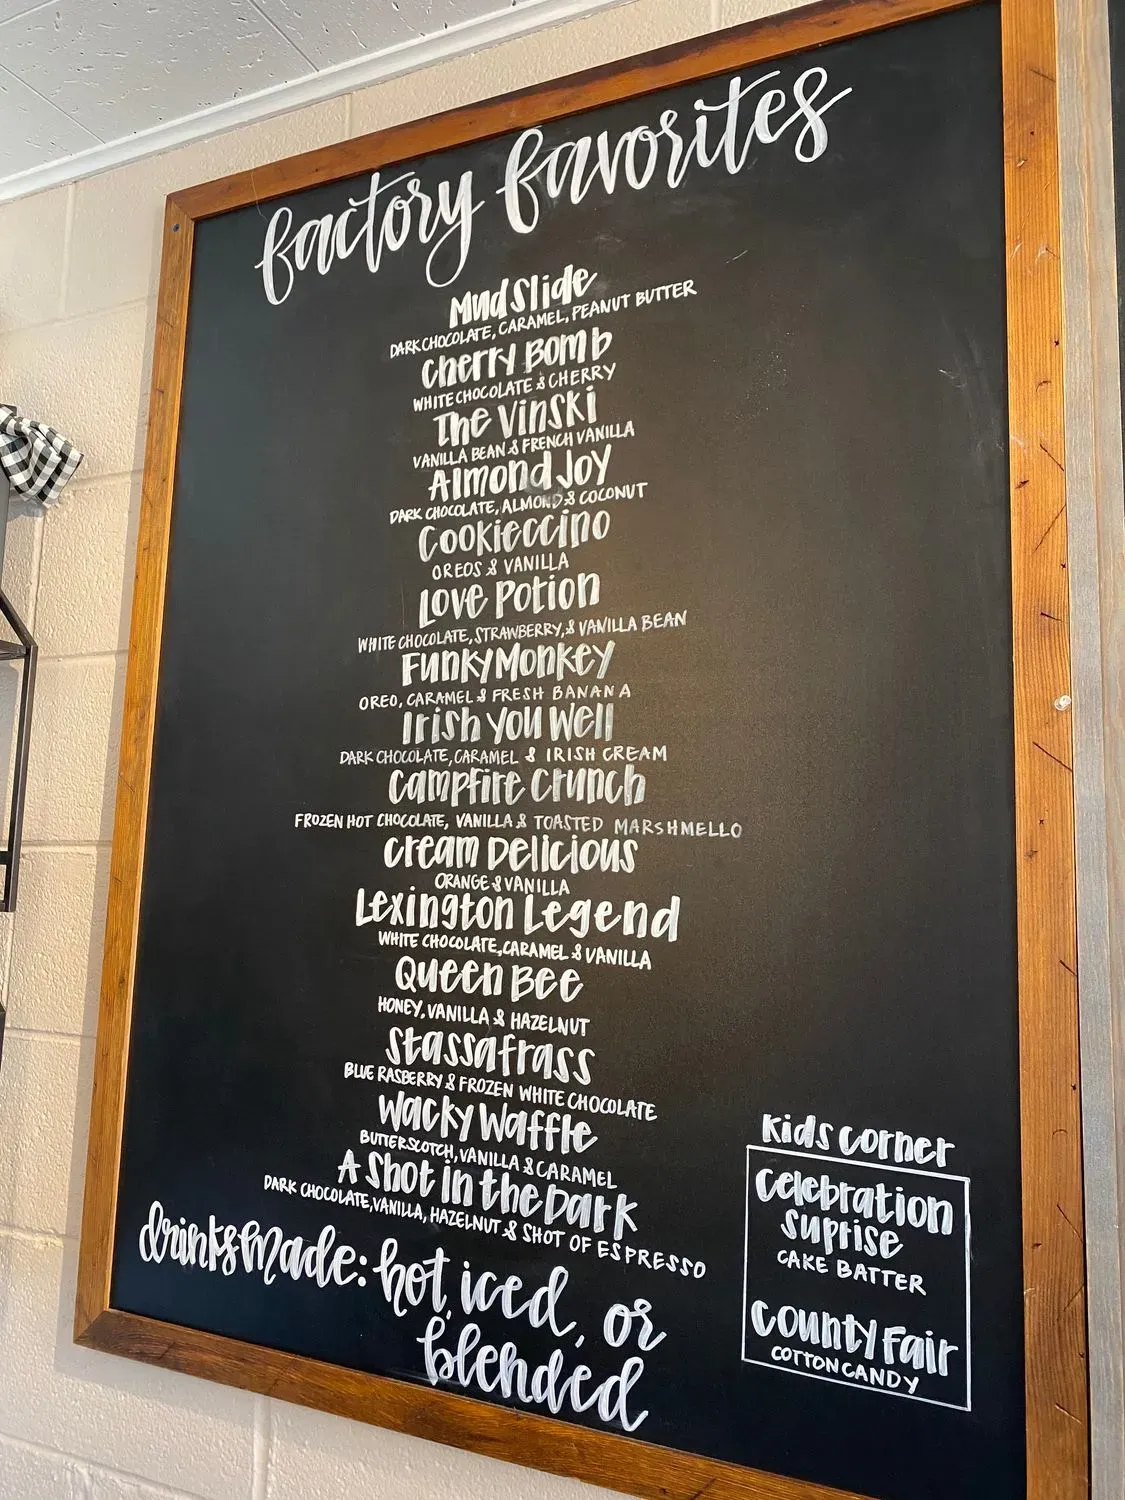 factory favorites
Mudslide
DARK CHOCOLATE, CARAMEL, PEANUT BUTTER
Cherry Bomb
WHITE CHOCOLATE & CHERRY
The Vinski
VANILLA BEAN & FRENCH VANILLA
Almond Joy
DARK CHOCOLATE, ALMOND & COCONUT
Cookieccino
OREOS & VANILLA
Love Potion
WHITE CHOCOLATE, STRAWBERRY, & VANILLA BEAN
Funky Monkey
OREO, CARAMEL & FRESH BANANA
Irish You Well
DARK CHOCOLATE, CARAMEL & IRISH CREAM
Campfire Crunch
FROZEN HOT CHOCOLATE, VANILLA & TOASTED MARSHMELLO
Cream Delicious
ORANGE & VANILLA
Lexington Legend
WHITE CHOCOLATE, CARAMEL & VANILLA
Queen Bee
HONEY, VANILLA & HAZELNUT
Stassafrass
BLUE RASBERRY & FROZEN WHITE CHOCOLATE
Wacky Waffle
BUTTERSCOTCH, VANILLA & CARAMEL
A Shot in the Dark
DARK CHOCOLATE, VANILLA, HAZELNUT & SHOT OF ESPRESSO
drinks made: hot, iced, or
blended
Kids Corner
Celebration
Suprise
CAKE BATTER
County Fair
COTTON CANDY